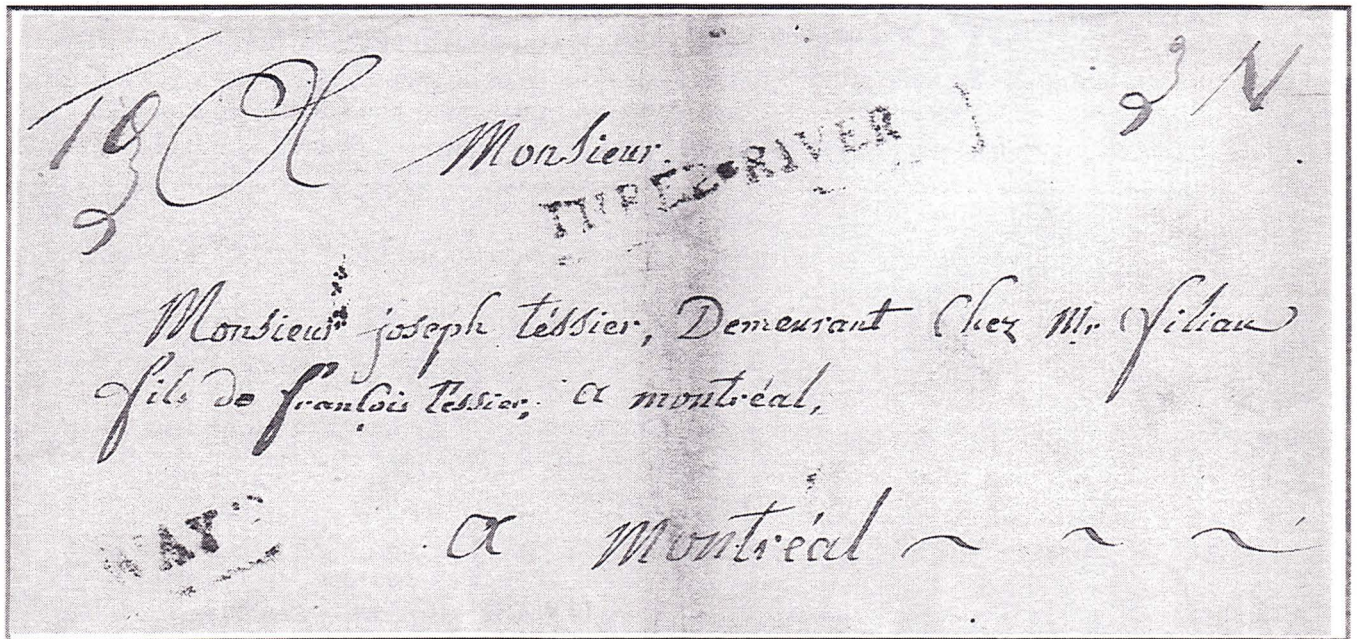 Monsieur.
THREE•RIVER
Monsieur joseph téssier, Demeurant Chez Mr. filiau
fils de françois téssier, a montréal,
MAY
a Montréal ~ ~ ~